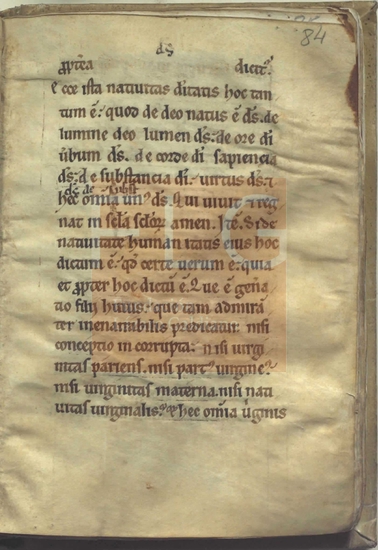 84
ds
ꝓpt̄ea dicit᷑.
Ecce ista natiuitas diuitatis hoc tan
tum ē. quod de deo natus ē ds̄. de
lumine deo lumen ds̄. de ore di
ūbum ds̄. de corde di sapiencia
ds̄. de substancia di. uirtus ds̄. ⁊
ds̄ de subst
hec om̄ia un᷒ ds̄. Qui uiuit ⁊ reg
nat in sc̄la sc̄lor̄. amen. Itē. Si de
natiuitate humanitatis eius hoc
dictum ē. qd̄ certe uerum ē. quia
et ꝓpter hoc dictū ē. Que ē gen̄a
tio filij huius. que tam admira
ter inenarribilis predicatur. nisi
conceptio incorrupta. nisi uirgi
nitas pariens. nisi part᷒ uirgine᷒.
nisi uirginitas materna. nisi nati
uitas uirginalis. hec om̄ia uginis